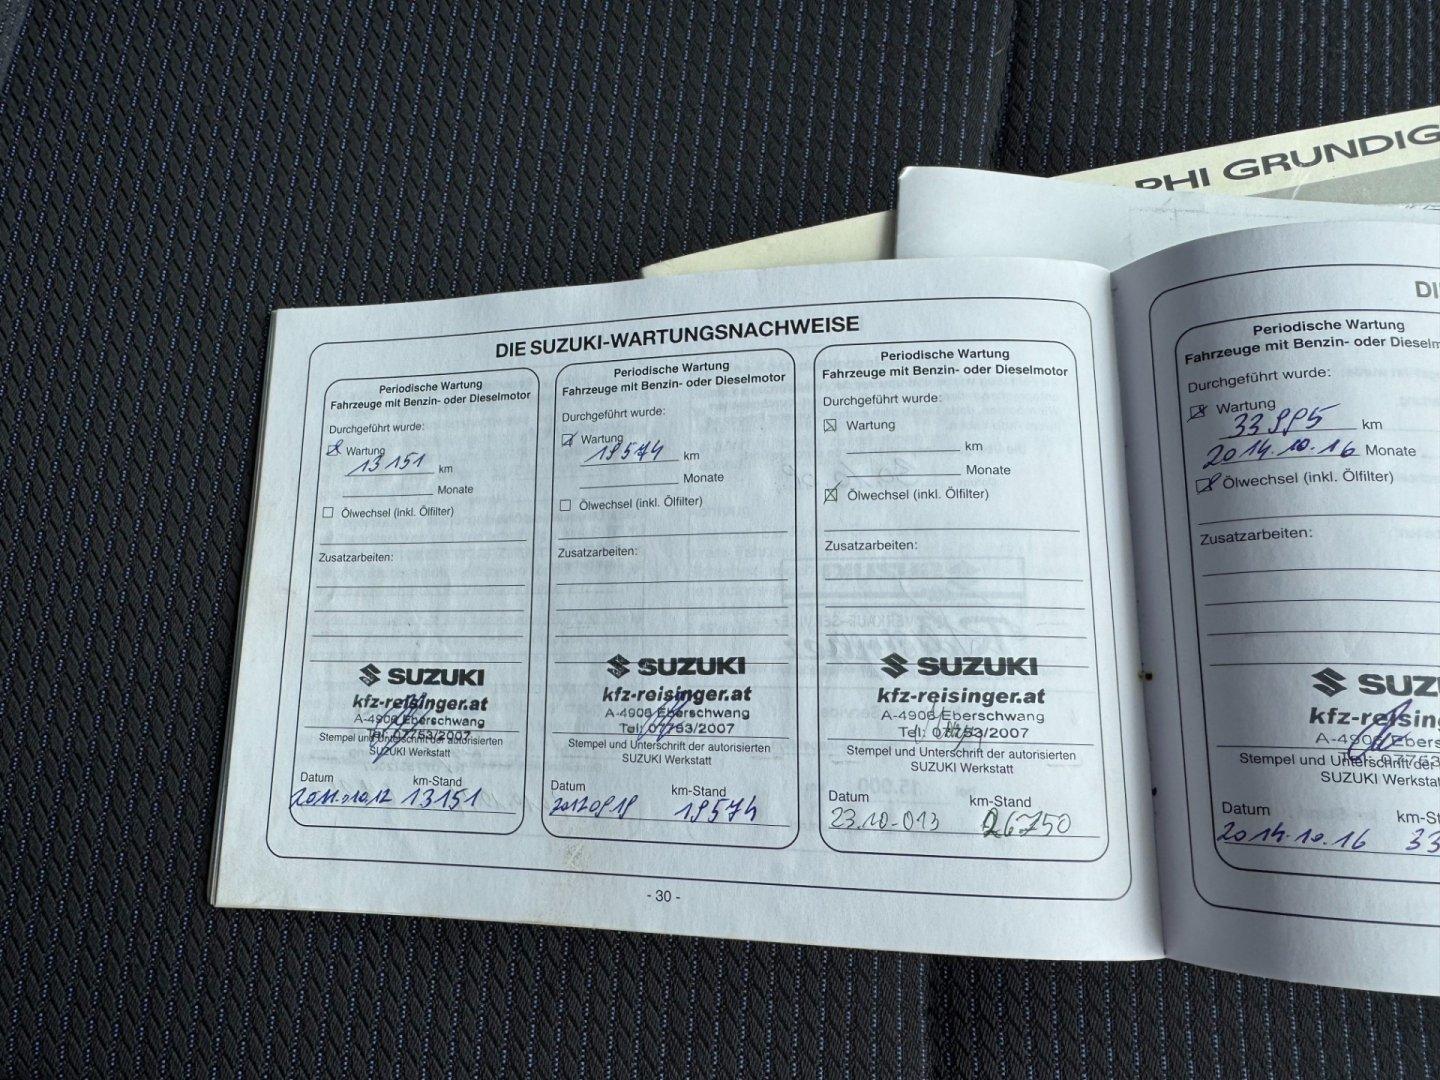 LPHI GRUNDIG
DIE SUZUKI-WARTUNGSNACHWEISE
Periodische Wartung
Fahrzeuge mit Benzin- oder Dieselmotor
Durchgeführt wurde:
Wartung
13151 km
Monate
Ölwechsel (inkl. Ölfilter)
Zusatzarbeiten:
SUZUKI
kfz-reisinger.at
A-4906 Eberschwang
Tel: 07753/2007
Stempel und Unterschrift der autorisierten
SUZUKI Werkstatt
Datum km-Stand
2011.10.12 13151
Periodische Wartung
Fahrzeuge mit Benzin- oder Dieselmotor
Durchgeführt wurde:
Wartung
19574 km
Monate
Ölwechsel (inkl. Ölfilter)
Zusatzarbeiten:
SUZUKI
kfz-reisinger.at
A-4906 Eberschwang
Tel: 07753/2007
Stempel und Unterschrift der autorisierten
SUZUKI Werkstatt
Datum km-Stand
20120919 19574
Periodische Wartung
Fahrzeuge mit Benzin- oder Dieselmotor
Durchgeführt wurde:
Wartung
km
Monate
Ölwechsel (inkl. Ölfilter)
Zusatzarbeiten:
SUZUKI
kfz-reisinger.at
A-4906 Eberschwang
Tel: 07753/2007
Stempel und Unterschrift der autorisierten
SUZUKI Werkstatt
Datum km-Stand
23.10-013 26750
- 30 -
DI
Periodische Wartung
Fahrzeuge mit Benzin- oder Dieselm
Durchgeführt wurde:
Wartung
km
2014.10.16 Monate
Ölwechsel (inkl. Ölfilter)
Zusatzarbeiten:
SUZU
kfz-reising
A-4906 Ebers
Stempel und Unterschrift der
SUZUKI Werkstat
Datum km-St
2014.10.16 33